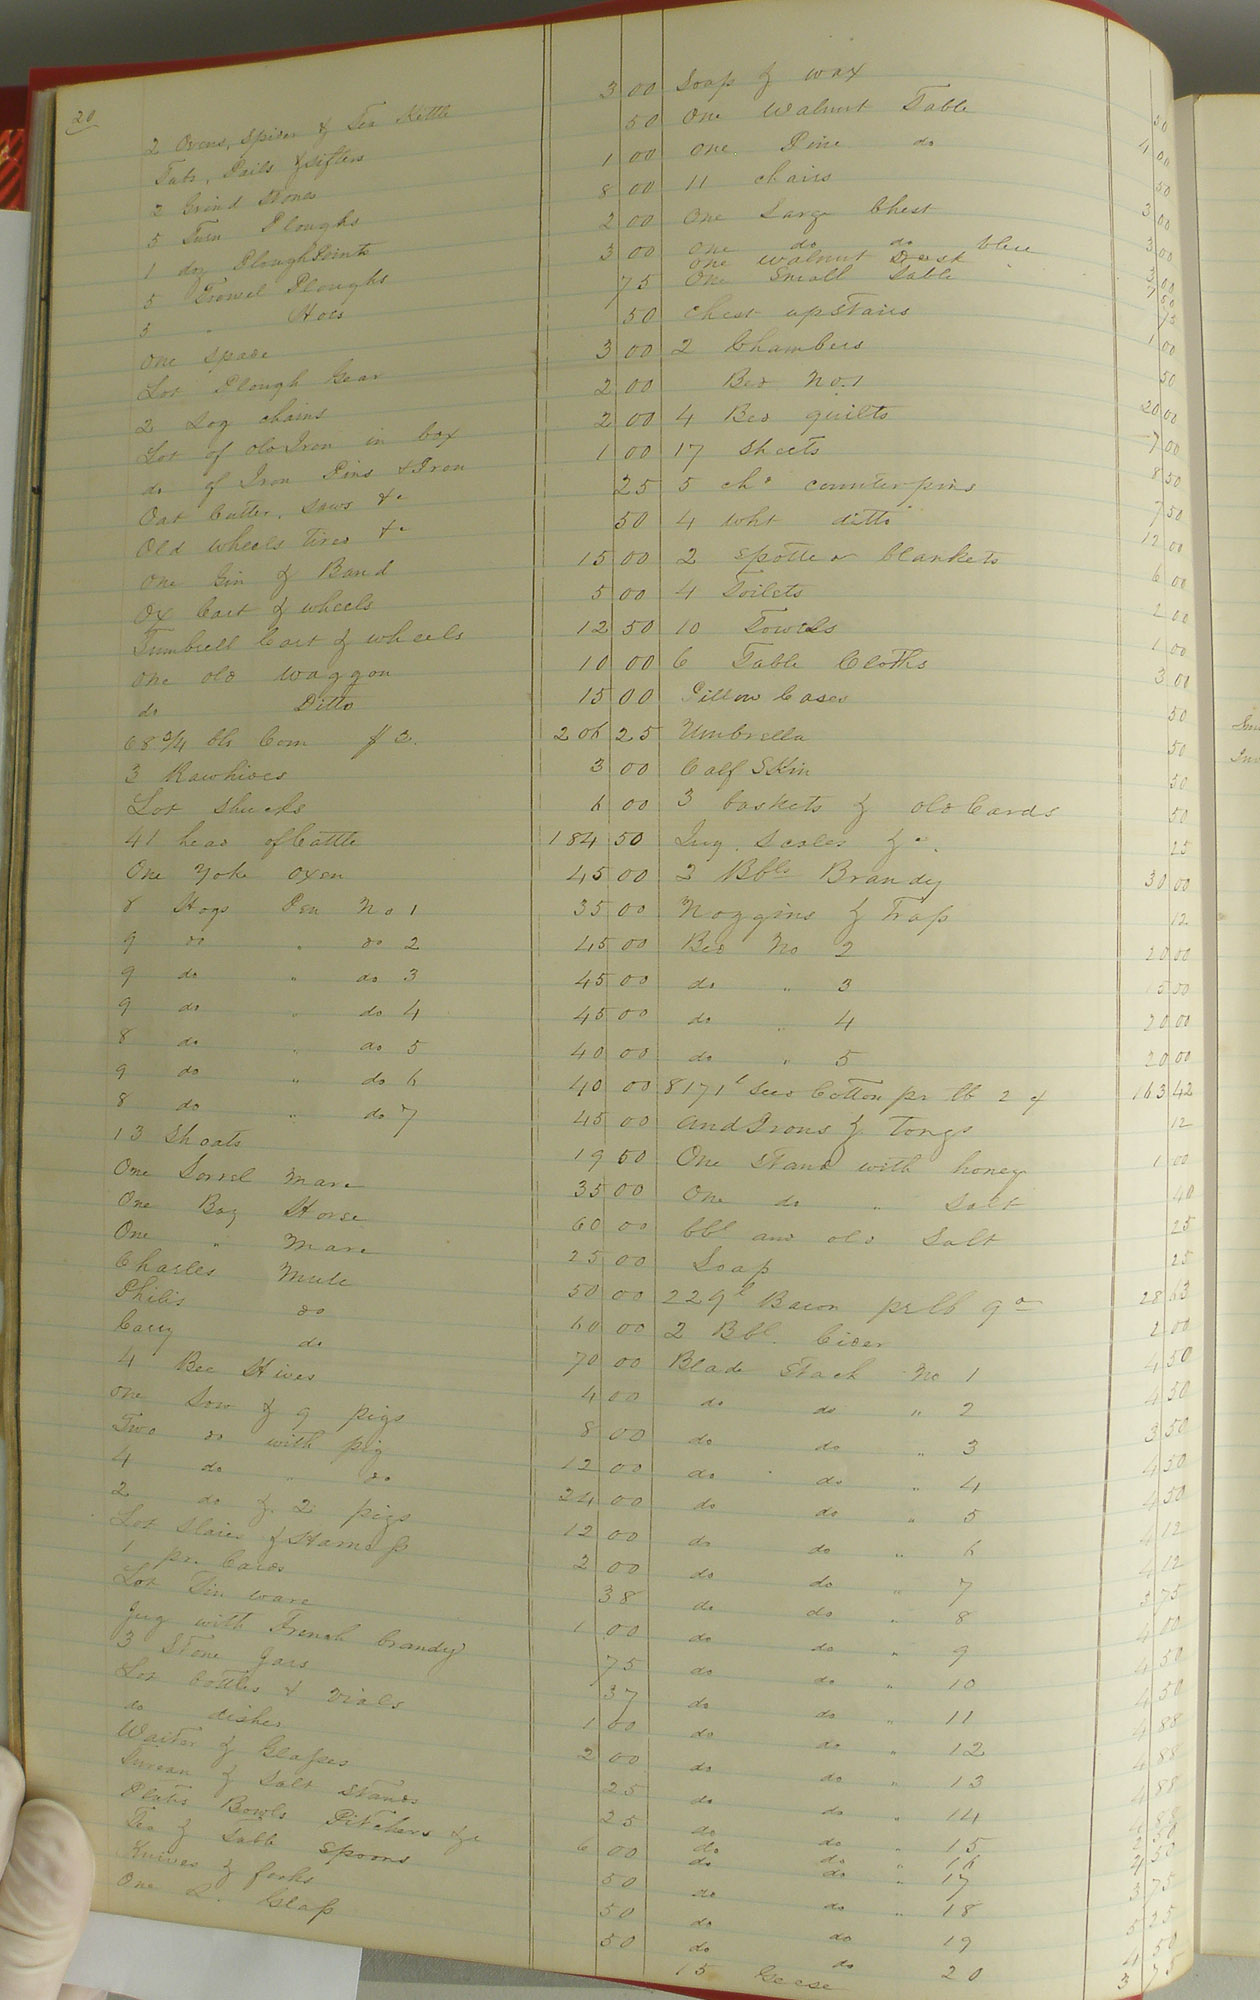 20
2 Ovens, Spider & Tea Kettle 3 00
Tubs, Pails & Sifters 50
2 Grind Stones 1 00
5 Turn Ploughs 8 00
1 doz Plough Points 2 00
5 Trowel Ploughs 3 00
3 " Hoes 75
One Spade 50
Lot Plough Gear 3 00
2 Log chains 2 00
Lot of old Iron in box 2 00
do of Iron Pins & Iron 1 00
Oat Cutter, Saws &c 25
Old wheels tires &c 50
One Gin & Band 15 00
Ox Cart & wheels 5 00
Tumbrell Cart & wheels 12 50
One old waggon 10 00
do Ditto 15 00
68 3/4 bls Corn $3. 206 25
3 Rawhides 3 00
Lot shucks 6 00
41 head of Cattle 184 50
One Yoke oxen 45 00
8 Hogs Pen No 1 35 00
9 do " do 2 45 00
9 do " do 3 45 00
9 do " do 4 45 00
8 do " do 5 40 00
9 do " do 6 40 00
8 do " do 7 45 00
13 Shoats 19 50
One Sorrel Mare 35 00
One Bay Horse 60 00
One " Mare 25 00
Charles Mule 50 00
Philis do 60 00
Cary do 70 00
4 Bee Hives 4 00
One Sow & 9 pigs 8 00
Two do with pig 12 00
4 do " do 24 00
2 do & 2 pigs 12 00
Lot Slaies & Harness 2 00
1 pr. Cards 38
Lot Tin ware 1 00
Jug with French brandy 75
3 Stone Jars 37
Lot bottles & Vials 1 00
do dishes 2 00
Waiter & Glasses 25
& Salt Stands 25
Plates Bowls Pitchers &c 6 00
Tea & Table Spoons 50
Knives & forks 50
One L. Glass 50
Soap & wax 50
One Walnut Table 4 00
One Pine do 50
11 chairs 3 00
One Large Chest 3 00
One do do blue 3 00
One walnut Desk 7 50
One Small Table 75
Chest upstairs 1 00
2 Chambers 50
Bed No. 1 20 00
4 Bed quilts 7 00
17 Sheets 8 50
5 ch^d counterpins 7 50
4 wht ditto 12 00
2 Spotted blankets 6 00
4 Toilets 2 00
10 Towels 1 00
6 Table Cloths 3 00
Pillow Cases 50
Umbrella 50
Calf Skin 50
3 baskets & old Cards 50
Jug. Scales &c. 25
2 Bbls Brandy 30 00
Noggins & Trap 12
Bed No 2 20 00
do " 3 15 00
do " 4 20 00
do " 5 20 00
8171 lb Seed Cotton pr lb 2 ¢ 163 42
And Irons & Tongs 12
One Stand with honey 1 00
One do " Salt 40
bbl and old Salt 25
Soap 25
229 lb Bacon pr lb 28 63
2 Bbl. Cider 2 00
Blade Stack No 1 4 50
do do " 2 4 50
do do " 3 3 50
do do " 4 4 50
do do " 5 4 50
do do " 6 4 12
do do " 7 4 12
do do " 8 3 75
do do " 9 4 00
do do " 10 4 50
do do " 11 4 50
do do " 12 4 88
do do " 13 4 88
do do " 14 4 88
do do " 15 4 88
do do " 16 2 50
do do " 17 4 50
do do " 18 3 75
do do 19 5 25
do do 20 4 50
15 Geese 3 75